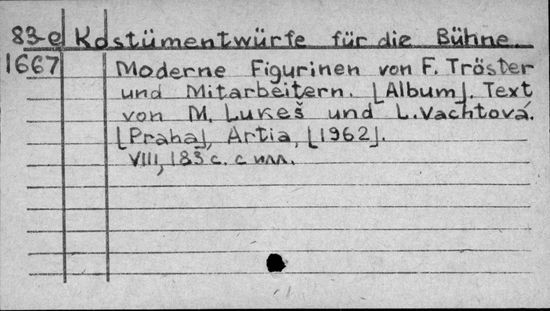 83-е Kostümentwürfe für die Bühne.
1667 Moderne Figurinen von F. Tröster
und Mitarbeitern. [Album]. Text
von M. Lukeš und L. Vachtová.
[Praha], Artia, [1962].
VIII, 183 с. с илл.